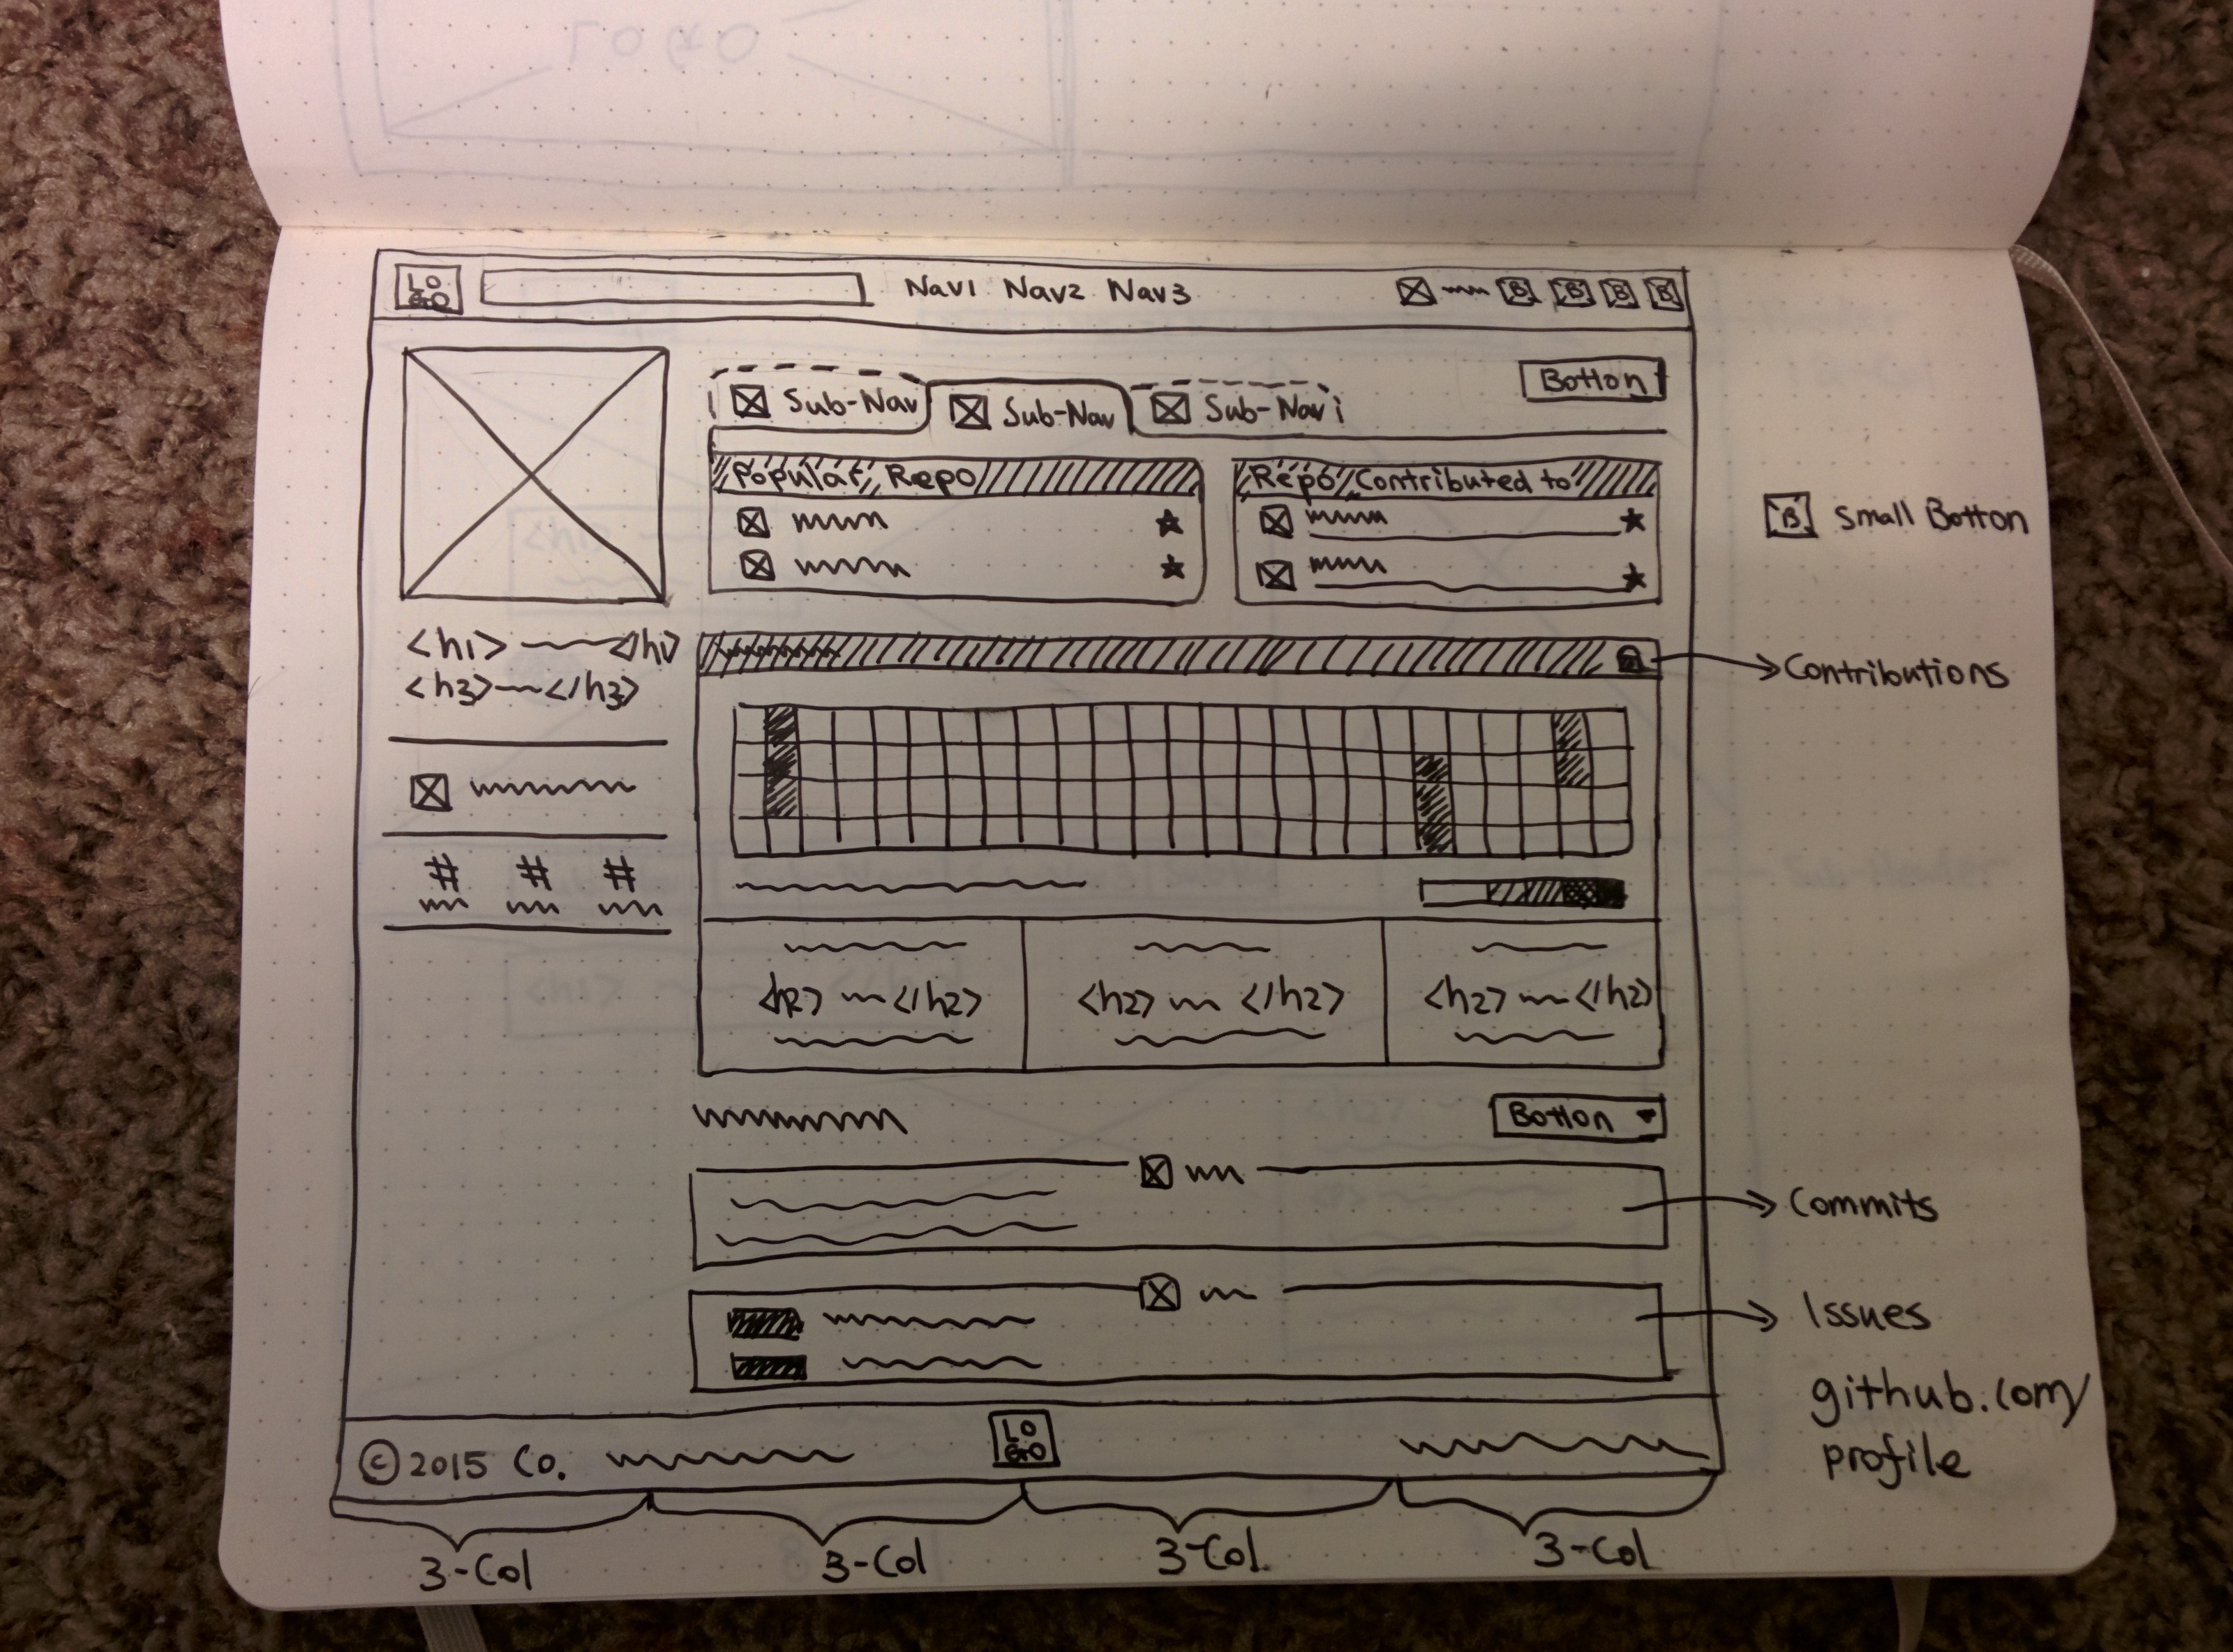 LOGO
LO
GO
Nav1 Nav2 Nav3
B B B B
Sub-Nav
Sub-Nav
Sub-Nav
Botton
Popular Repo
Repo Contributed to
B Small Botton
<h1> </h1>
<h3> </h3>
Contributions
# # #
<h2> </h2>
<h2> </h2>
<h2> </h2>
Botton
Commits
Issues
github.com/
profile
© 2015 Co.
LO
GO
3-Col 3-Col 3-Col 3-Col